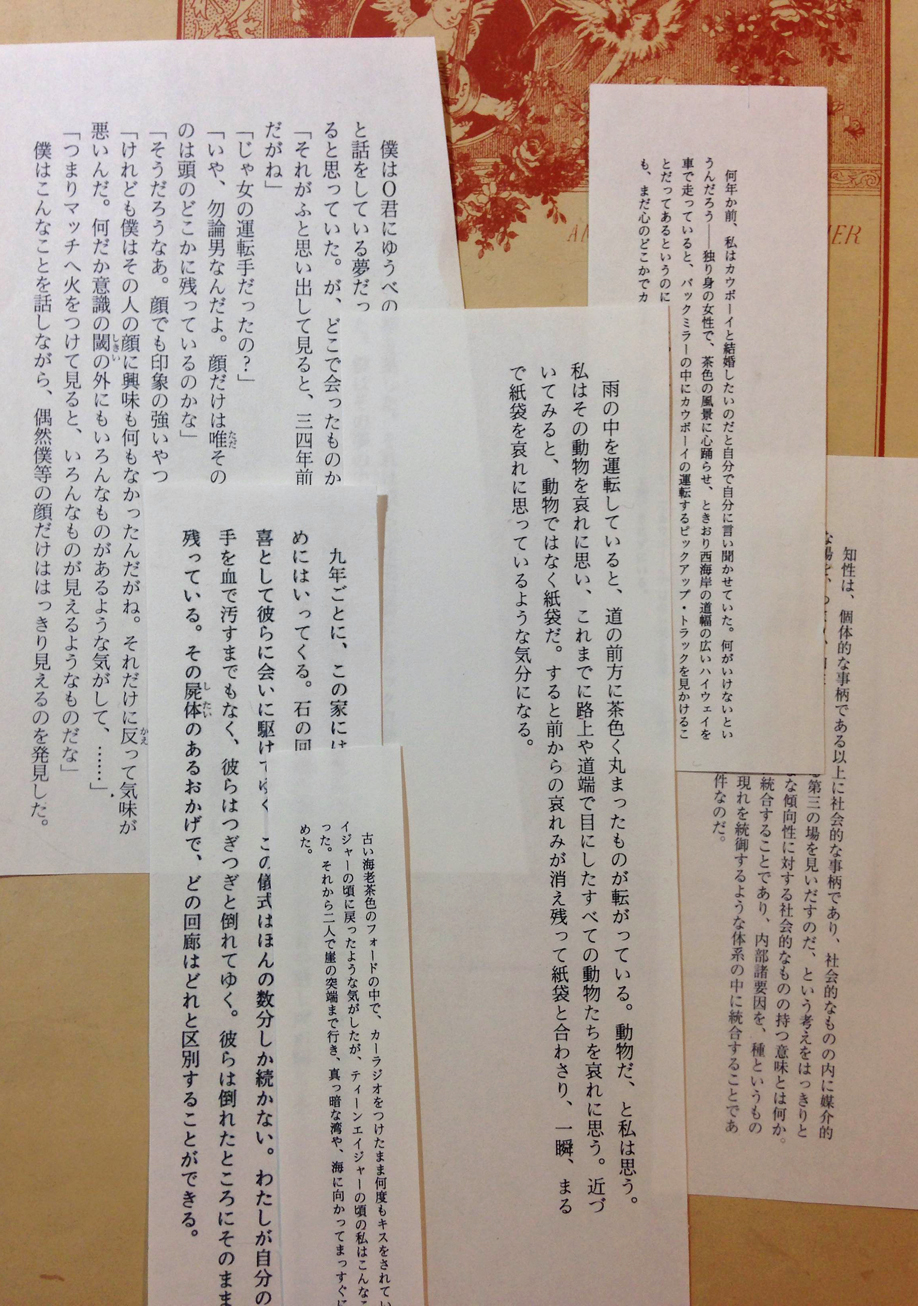 僕はO君にゆうべの
と話をしている夢だっ
ると思っていた。が、どこで会ったものか
「それがふと思い出して見ると、三四年前
だがね」
「じゃ女の運転手だったの?」
「いや、勿論男なんだよ。顔だけは唯ただその
のは頭のどこかに残っているのかな」
「そうだろうなあ。顔でも印象の強いやつ
「けれども僕はその人の顔に興味も何もなかったんだがね。それだけに反かえって気味が
悪いんだ。何だか意識の閾しきいの外にもいろんなものがあるような気がして、……」
「つまりマッチへ火をつけて見ると、いろんなものが見えるようなものだな」
僕はこんなことを話しながら、偶然僕等の顔だけははっきり見えるのを発見した。
何年か前、私はカウボーイと結婚したいのだと自分で自分に言い聞かせていた。何がいけないとい
うんだろう――独り身の女性で、茶色の風景に心踊らせ、ときおり西海岸の道幅の広いハイウェイを
車で走っていると、バックミラーの中にカウボーイの運転するピックアップ・トラックを見かけるこ
とだってあるというのに
も、まだ心のどこかでカ
雨の中を運転していると、道の前方に茶色く丸まったものが転がっている。動物だ、と私は思う。
私はその動物を哀れに思い、これまでに路上や道端で目にしたすべての動物たちを哀れに思う。近づ
いてみると、動物ではなく紙袋だ。すると前からの哀れみが消え残って紙袋と合わさり、一瞬、まる
で紙袋を哀れに思っているような気分になる。
知性は、個体的な事柄である以上に社会的な事柄であり、社会的なものの内に媒介的
第三の場を見いだすのだ、という考えをはっきりと
な傾向性に対する社会的なものの持つ意味とは何か。
統合することであり、内部諸要因を、種というもの
現れを統御するような体系の中に統合することであ
件なのだ。
九年ごとに、この家には
めにはいってくる。石の回
喜として彼らに会いに駆けてゆく――この儀式はほんの数分しか続かない。わたしが自分の
手を血で汚すまでもなく、彼らはつぎつぎと倒れてゆく。彼らは倒れたところにそのまま
残っている。その屍体したいのあるおかげで、どの回廊はどれと区別することができる。
古い海老茶色のフォードの中で、カーラジオをつけたまま何度もキスをされてい
イジャーの頃に戻ったような気がしたが、ティーンエイジャーの頃の私はこんなこ
った。それから二人で崖の突端まで行き、真っ暗な湾や、海に向かってまっすぐに
めた。